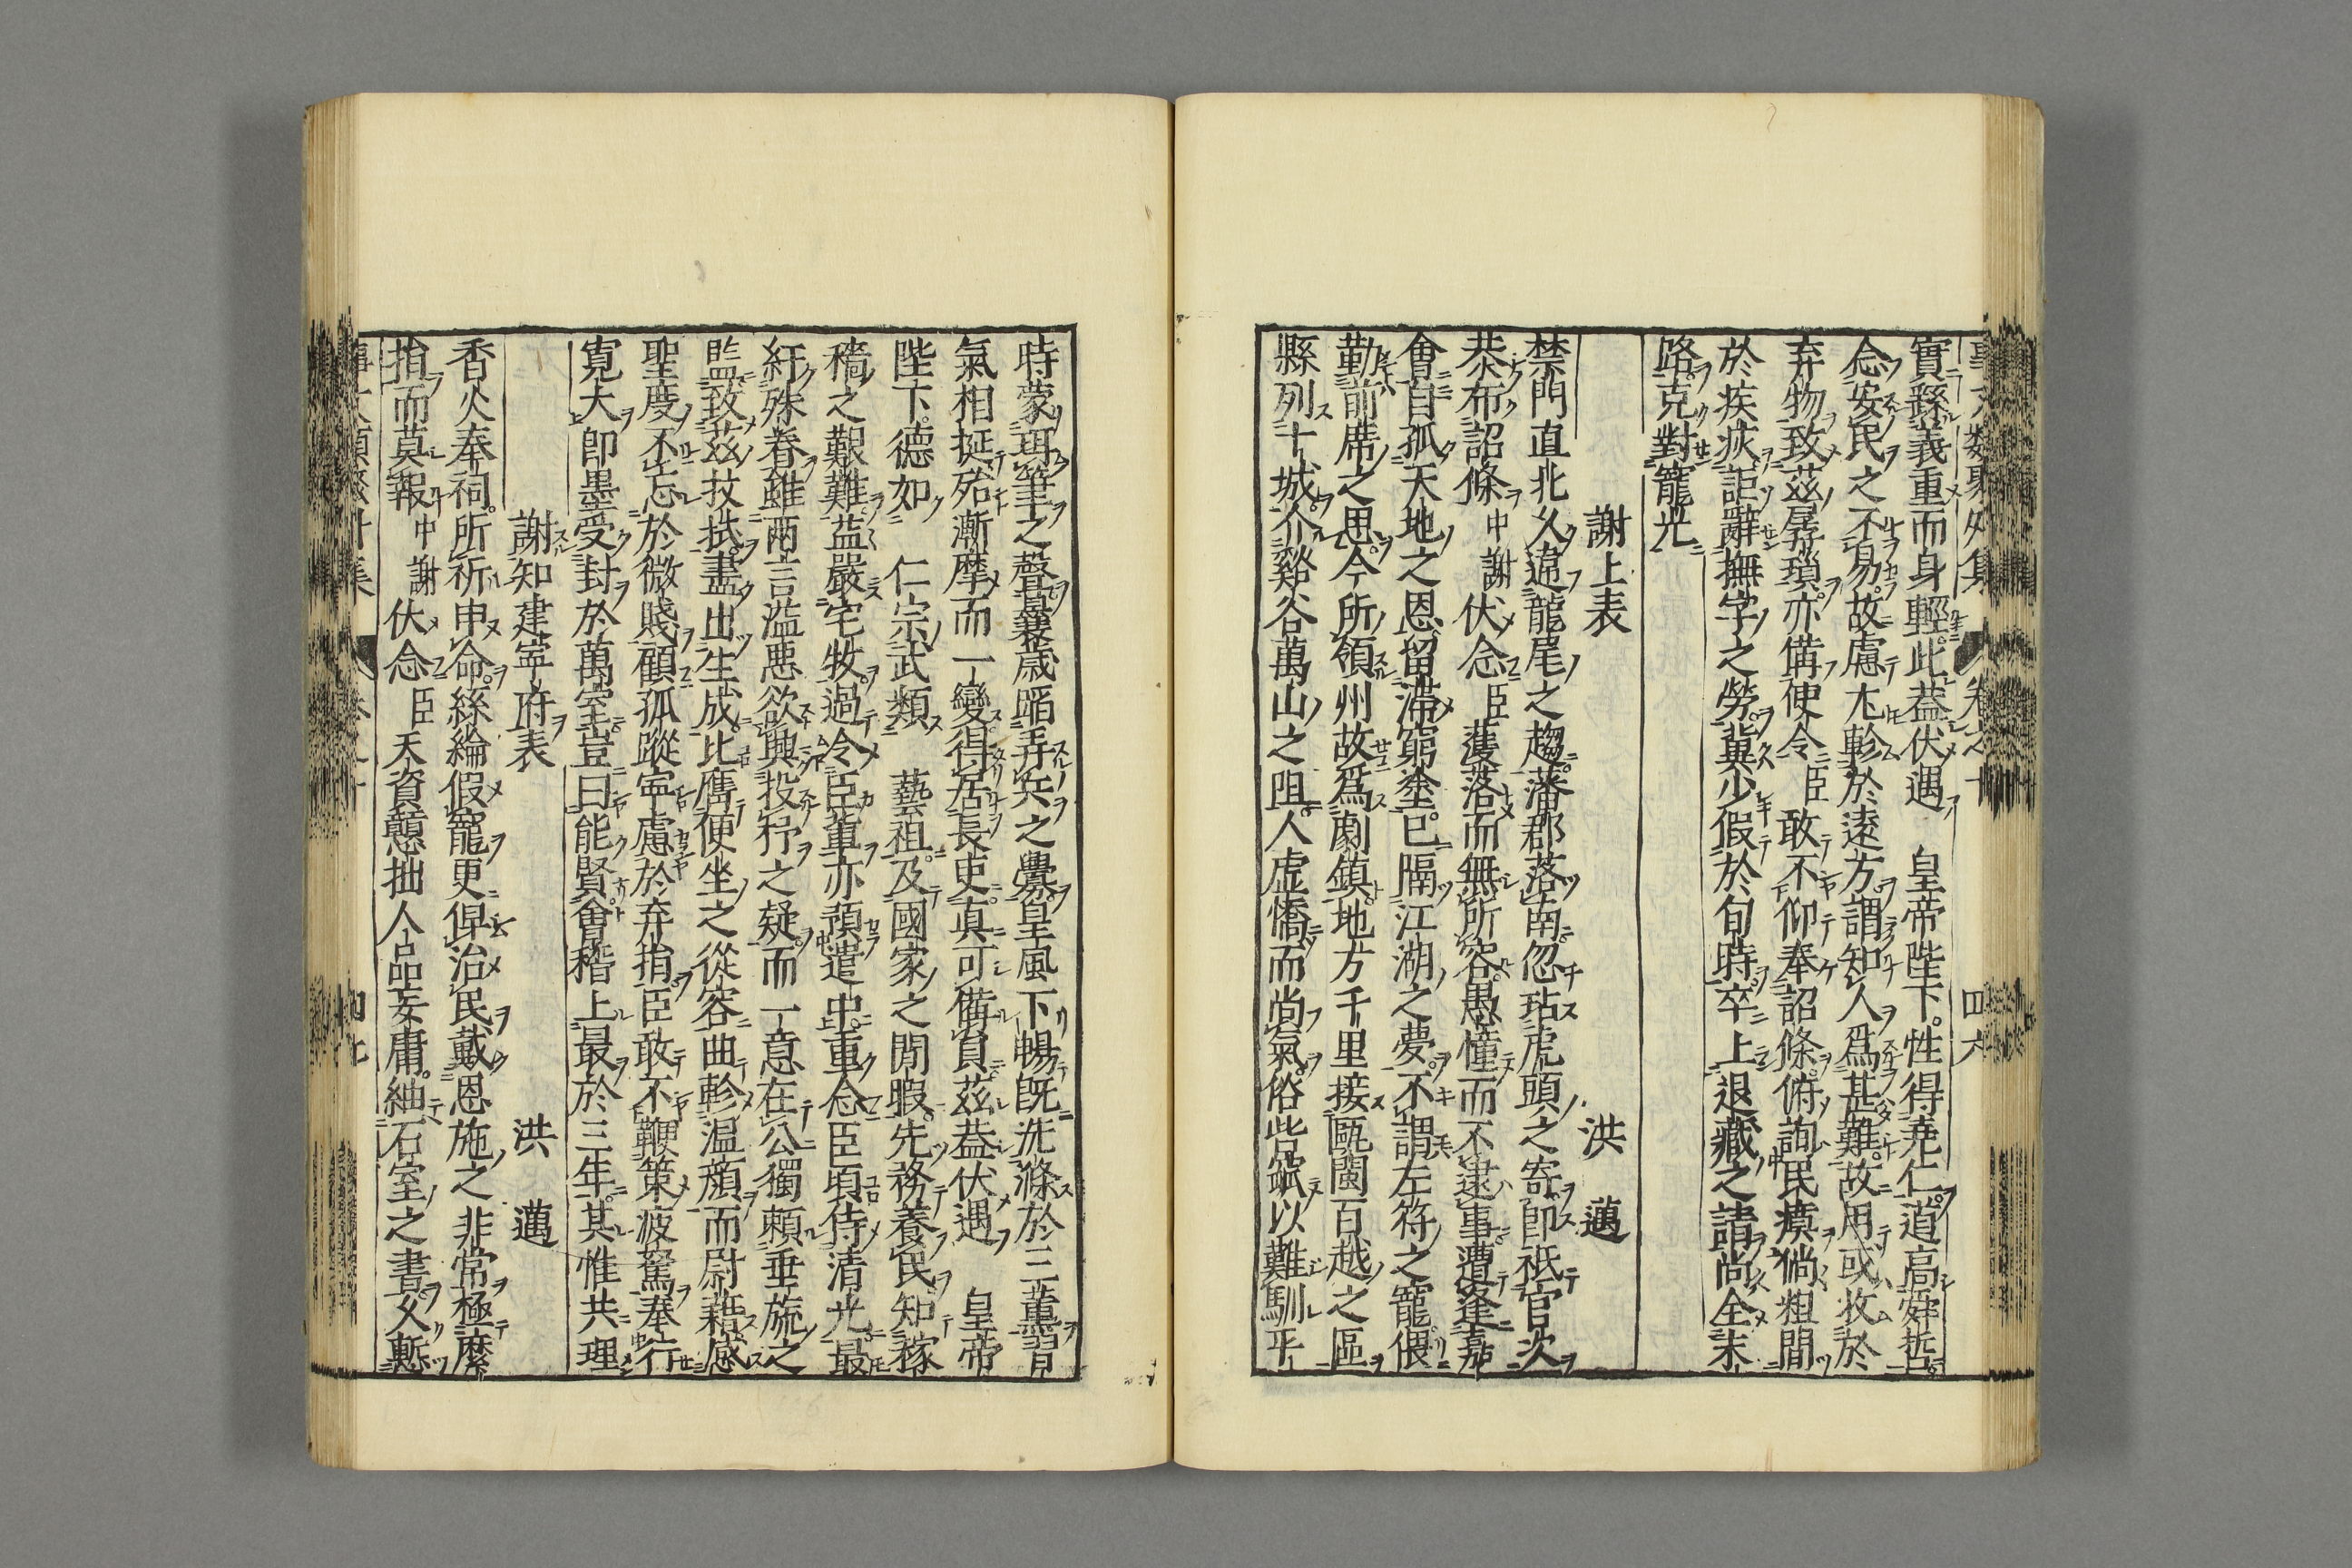 實繇義重而身輕此蓋伏遇　皇帝陛下性得堯仁道高舜哲
念安民之不易故慮尤軫於遠方謂知人爲甚難故用或收於
弃物致茲孱瑣亦備使令臣敢不仰奉詔條俯詢民瘼徜粗間
於疾疢詎辭撫字之勞冀少假於旬時卒上退藏之請尚全末
路克對寵光
謝上表　洪　邁
禁門直北久違龍尾之趨藩郡落南忽玷虎頭之寄即祗官次
恭布詔條中謝伏念臣濩落而無所容愚憧而不逮事遭逢嘉
會自孤天地之恩留滯窮塗已隔江湖之夢不謂左符之寵偎
勤前席之思今所領州故爲劇鎮地方千里接甌閩百越之區
縣列十城介谿谷萬山之阻人虛憍而尚氣俗呰窳以難馴平
時蒙珥筆之聲曩歲蹈弄兵之釁皇風下暢旣洗滌於三薰習
氣相挻殆漸摩而一變得居長吏眞可備員茲蓋伏遇　皇帝
陛下德如　仁宗武類　藝祖及國家之閒暇先務養民知稼
穡之艱難益嚴宅牧過令臣輩亦預遣中重念臣頃侍清光最
紆殊眷雖兩言溢惡欲興投杼之疑而一意在公獨賴垂旒之
監致茲抆拭盡出生成比膺便坐之從容曲軫温顔而尉藉感
聖度不忘於微賤顧孤蹤寧慮於弃捐臣敢不鞭策疲駑奉行
寬大即墨受封於萬室豈曰能賢會稽上最於三年其惟共理
謝知建寧府表　洪　邁
香火奉祠所祈申命絲綸假寵更俾治民戴恩施之非常極縻
捐而莫報中謝伏念臣天資戇拙人品妄庸紬石室之書久慙